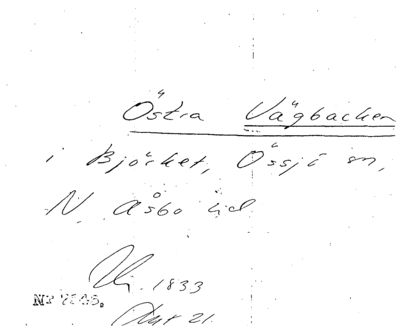 Östra Vägbacken
i Björket, Össjö sn,
N. Åsbo hd
1833
21.